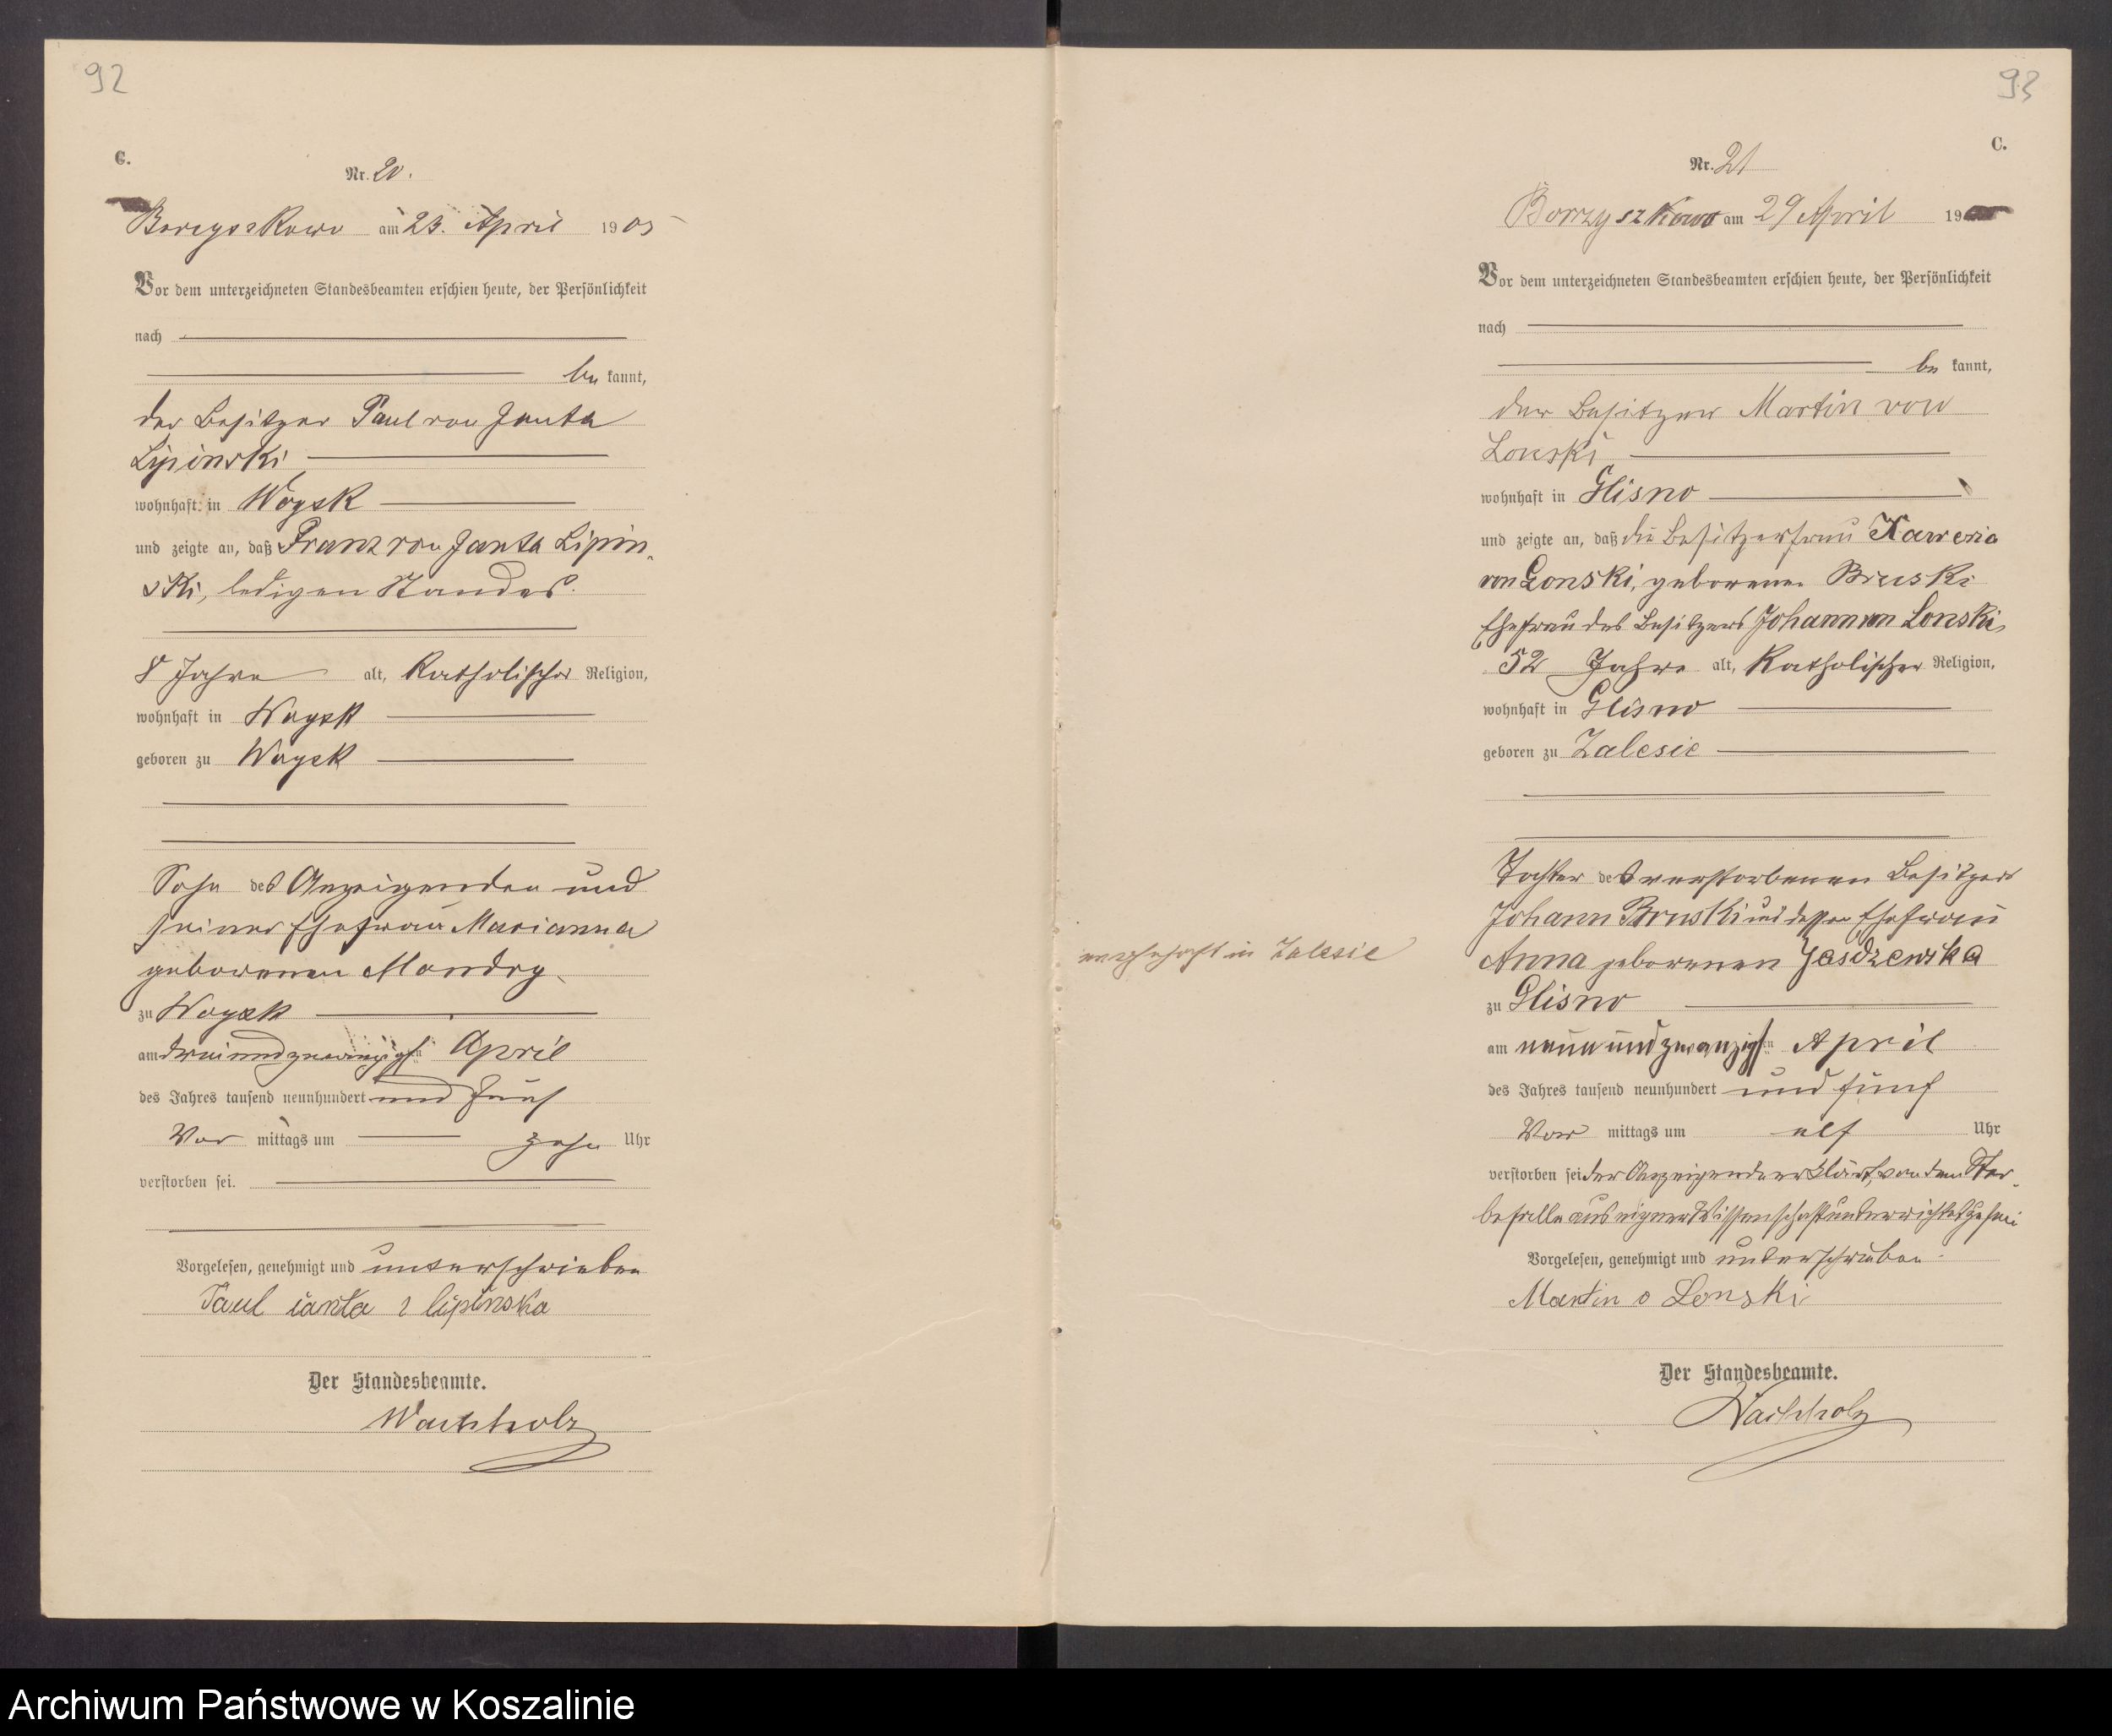 92
C.
Nr. 20.
Borzyszkowo am 23. April 1905
Vor dem unterzeichneten Standesbeamten erschien heute, der Persönlichkeit
nach
be kannt,
der Besitzer Paul von Janta
Lipinski
wohnhaft in Woysk
und zeigte an, daß Franz von Janta Lipin-
ski, ledigen Standes.
8 Jahre alt, katholischer Religion,
wohnhaft in Woysk
geboren zu Woysk
Sohn des Anzeigenden und
seiner Ehefrau Marianna
geborenen Mondry
zu Woysk
am dreiundzwanzigsten April
des Jahres tausend neunhundert und fünf
Vor mittags um zehn Uhr
verstorben sei.
Vorgelesen, genehmigt und unterschrieben
Paul janta lipinska
Der Standesbeamte.
Wachholz
93
C.
Nr. 21
Borzyszkowo am 29 April 19
Vor dem unterzeichneten Standesbeamten erschien heute, der Persönlichkeit
nach
be kannt,
der Besitzer Martin von
Lonski
wohnhaft in Glisno
und zeigte an, daß die Besitzerfrau Xaweria
von Lonski, geborenen Bruski
Ehefrau des Besitzers Johann von Lonski,
52 Jahre alt, katholischer Religion,
wohnhaft in Glisno
geboren zu Zalesie
Tochter des verstorbenen Besitzers
Johann Bruski und dessen Ehefrau
wohnhaft in Zalesie
Anna geborenen Jasdzewska
zu Glisno
am neunundzwanzigsten April
des Jahres tausend neunhundert und fünf
Vor mittags um elf Uhr
verstorben sei der Anzeigende erklärt, von dem Ster-
befalle aus eigner Wissenschaft unterrichtet zu sein
Vorgelesen, genehmigt und unterschrieben.
Martin v Lonski
Der Standesbeamte.
Wachholz
Archiwum Państwowe w Koszalinie